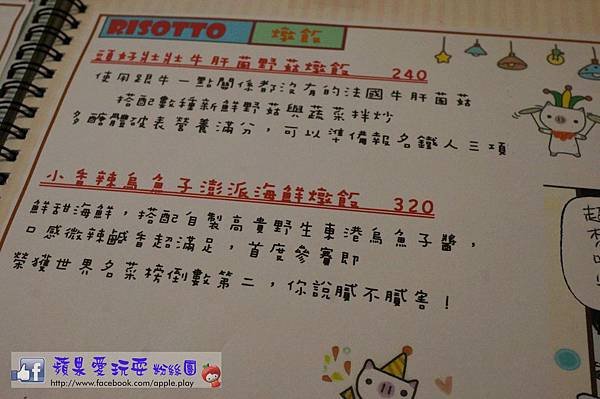 RISOTTO 燉飯
頭好壯壯牛肝菌野菇燉飯 240
使用跟牛一點關係都沒有的法國牛肝菌菇
搭配數種新鮮野菇與蔬菜拌炒
多醣體破表營養滿分,可以準備報名鐵人三項
小香辣烏魚子澎派海鮮燉飯 320
鮮甜海鮮,搭配自製高貴野生東港烏魚子醬,
口感微辣鹹香超滿足,首度參賽即
榮獲世界名菜榜倒數第二,你說膩不膩害!
蘋果愛玩耍粉絲團
http://www.facebook.com/apple.play